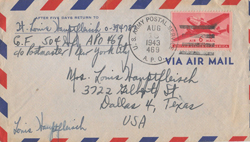 AFTER FIVE DAYS RETURN TO
Lt. Louis Hauptfleisch
G.F. 504 A.P.O 469
c/o Postmaster New York City
U.S. ARMY POSTAL SERVICE
AUG
1943
469
A.P.O.
VIA AIR MAIL
Mrs. Louis Hauptfleisch
3722 Gilbert St
Dallas 4, Texas
USA
Louis Hauptfleisch